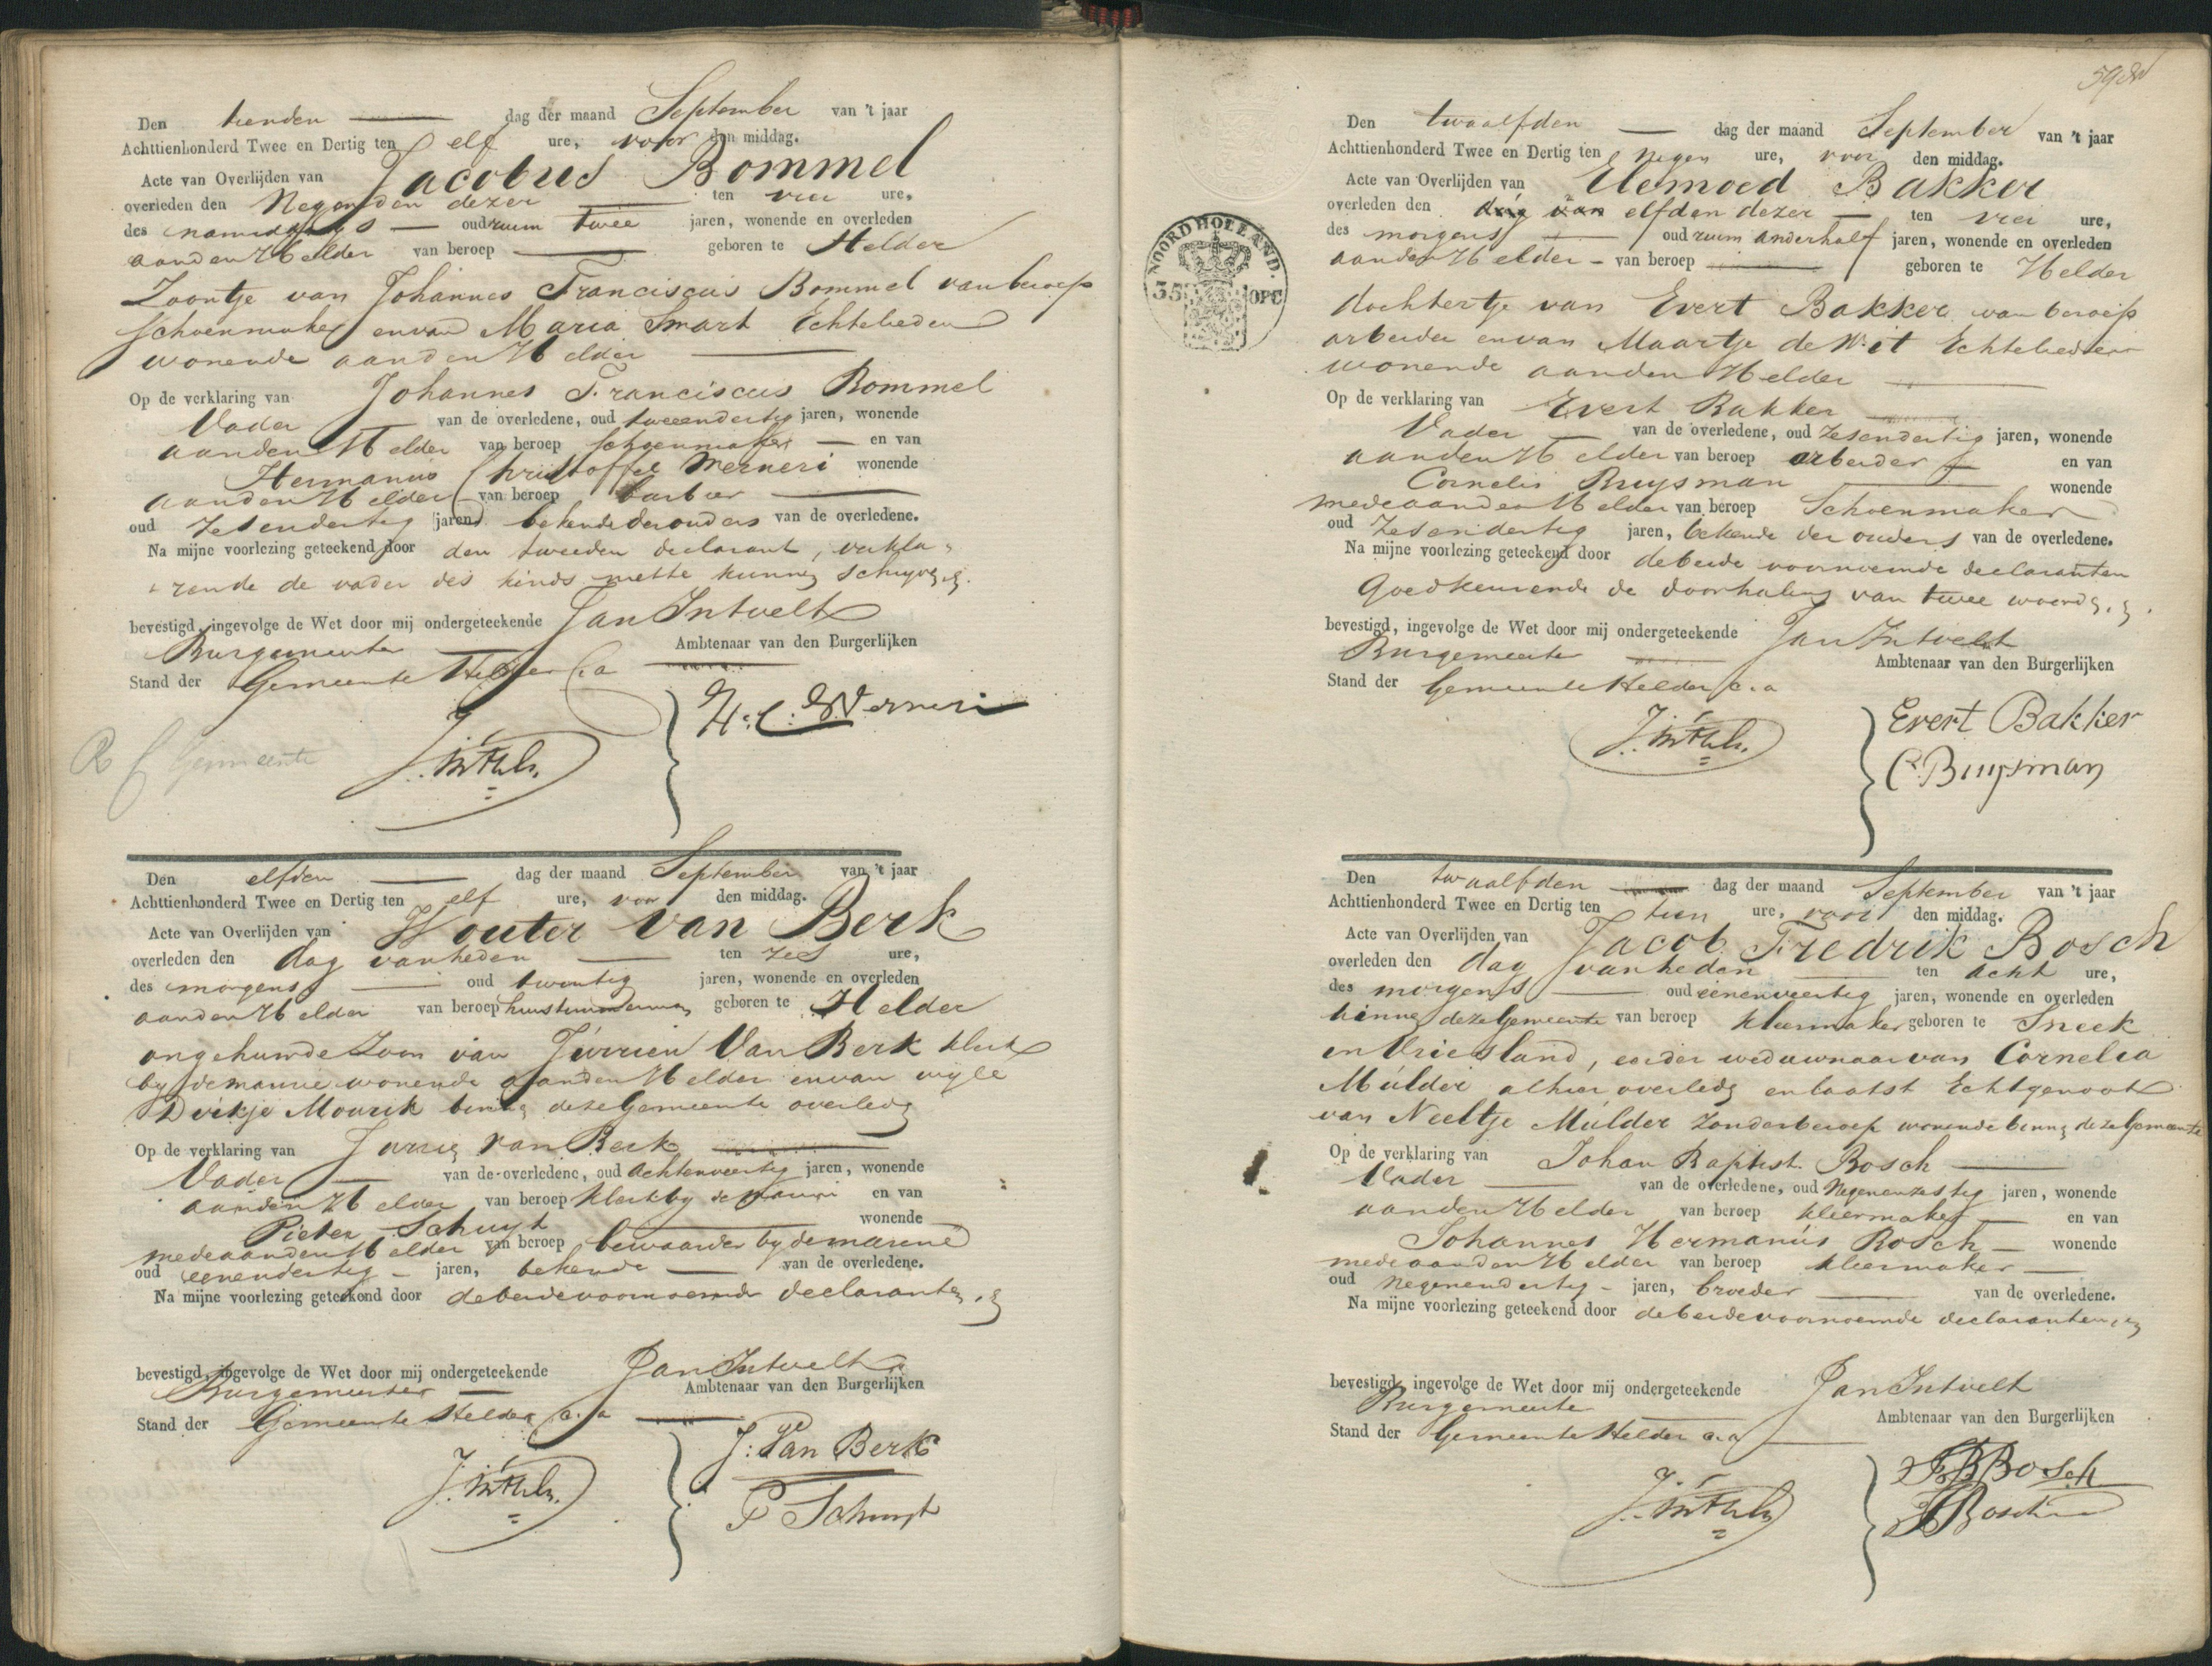 Den tienden dag der maand September van 't jaar
Achttienhonderd Twee en Dertig ten elf ure, voor den middag.
Acte van Overlijden van Jacobus Bommel
overleden den Negenden dezer ten vier ure,
des namiddags oud ruim twee jaren, wonende en overleden
aanden Helder van beroep geboren te Helder
Zoontje van Johannes Franciscus Bommel van beroep
schoenmaker envan Maria Smart Echtelieden
wonende aanden Helder
Op de verklaring van Johannes Franciscus Bommel
Vader van de overledene, oud tweeendertig jaren, wonende
aanden Helder van beroep schoenmaker en van
Hermanus Christoffel Werneri wonende
aanden Helder van beroep barbier
oud zesendertig jaren bekende der ouders van de overledene.
Na mijne voorlezing geteekend door den tweeden declarant, verkla-
rende de vader des kinds niette kunnen schryven.
bevestigd, ingevolge de Wet door mij ondergeteekende Jan Intvelt
Burgemeester Ambtenaar van den Burgerlijken
Stand der Gemeente Helder C.a
H: C: Werneri
Gemeente
Den elfden dag der maand September van 't jaar
Achttienhonderd Twee en Dertig ten elf ure, voor den middag.
Acte van Overlijden van Wouter Van Berk
overleden den dag vanheden ten zes ure,
des morgens oud twentig jaren, wonende en overleden
aanden Helder van beroep geboren te Helder
ongehuwde Zoon van Jurrien Van Berk klerk
by de marine wonende aanden Helder envan wyle
Dirkje Mourik binnen deze Gemeente overleden
Op de verklaring van Jurrien van Berk
Vader van de overledene, oud achtenveertig jaren, wonende
aanden Helder van beroep klerk by de marine en van
Pieter Schuyt wonende
medeaanden Helder van beroep bewaarder by demarine
oud eenendertig jaren, bekende van de overledene.
Na mijne voorlezing geteekend door debeidevoornoemde declaranten.
bevestigd, ingevolge de Wet door mij ondergeteekende Jan Intvelt
Burgemeester Ambtenaar van den Burgerlijken
Stand der Gemeente Helder C.a
J: Van Berk
P Schuyt
NOORD HOLLAND.
35 OPC
Den twaalfden dag der maand September van 't jaar
Achttienhonderd Twee en Dertig ten negen ure, voor den middag.
Acte van Overlijden van Elemoed Bakker
overleden den dag van elfden dezer ten vier ure,
des morgens oud ruim anderhalf jaren, wonende en overleden
aanden Helder van beroep geboren te Helder
dochtertje van Evert Bakker van beroep
arbeider envan Maartje de Wit Echtelieden
wonende aanden Helder
Op de verklaring van Evert Bakker
Vader van de overledene, oud zesendertig jaren, wonende
aanden Helder van beroep arbeider en van
Cornelis Buysman wonende
medeaanden Helder van beroep Schoenmaker
oud zesendertig jaren, bekende der ouders van de overledene.
Na mijne voorlezing geteekend door debeide voornoemde declaranten
Goedkeurende de doorhaling van twee woorden.
bevestigd, ingevolge de Wet door mij ondergeteekende Jan Intvelt
Burgemeester Ambtenaar van den Burgerlijken
Stand der Gemeente Helder C.a
Evert Bakker
C. Buysman
Den twaalfden dag der maand September van 't jaar
Achttienhonderd Twee en Dertig ten tien ure, voor den middag.
Acte van Overlijden van Jacob Fredrik Bosch
overleden den dag vanheden ten acht ure,
des morgens oud eenenveertig jaren, wonende en overleden
binnen deze Gemeente van beroep kleermaker geboren te Sneek
in Vriesland, eerder weduwnaar van Cornelia
Mulder alhier overleden enlaatst Echtgenoot
van Neeltje Mulder Zonderberoep wonende binnen deze Gemeente
Op de verklaring van Johan Baptist Bosch
Vader van de overledene, oud Negenenzestig jaren, wonende
aanden Helder van beroep kleermaker en van
Johannes Hermanus Bosch wonende
medeaanden Helder van beroep kleermaker
oud negenendertig jaren, broeder van de overledene.
Na mijne voorlezing geteekend door debeidevoornoemde declaranten.
bevestigd, ingevolge de Wet door mij ondergeteekende Jan Intvelt
Burgemeester Ambtenaar van den Burgerlijken
Stand der Gemeente Helder C.a
Bosch
Bosch